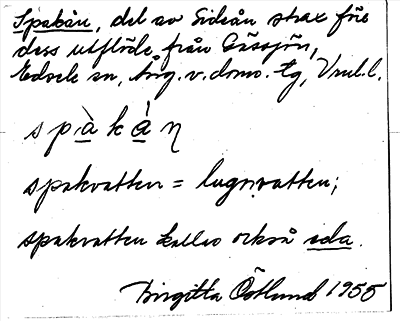 Spakån, del av Sideån strax före
dess utflöde från Gåssjön,
Edsele sn, Ång. v. doms. tg, Vnl. l.
s p à k å̀ n
spakvatten = lugnvatten;
spakvatten kallas också ida.
Birgitta Östlund 1955